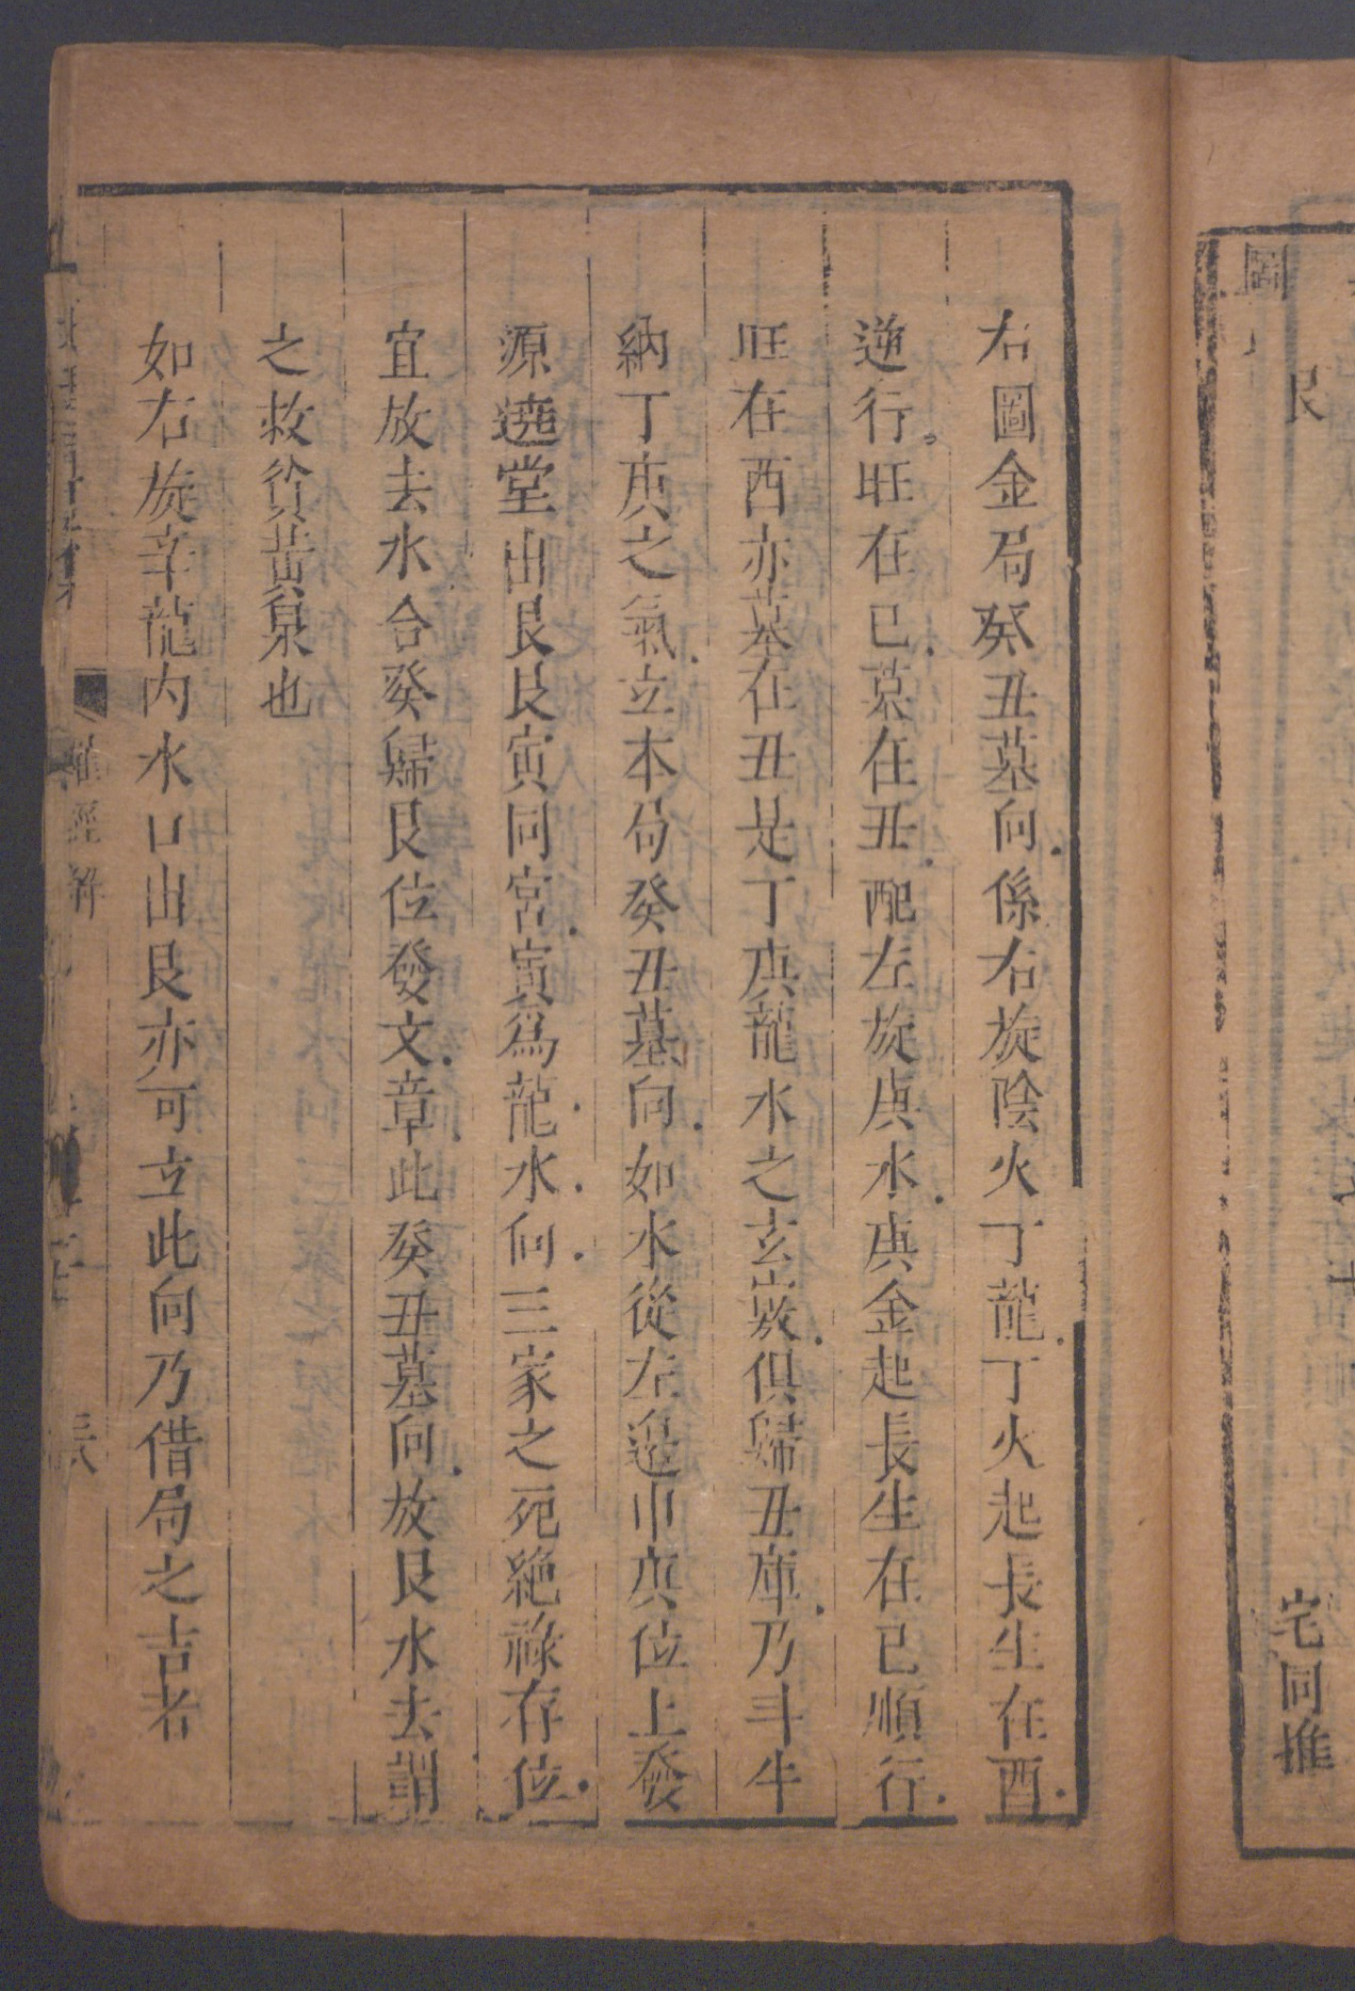 艮
宅同推
右圖金局癸丑墓向係右旋陰火丁龍丁火起長生在酉
逆行旺在巳墓在丑配左旋庚水庚金起長生在巳順行
旺在酉亦墓在丑是丁庚龍水之玄嶶俱歸丑庫乃斗牛
納丁庚之氣立本局癸丑墓向如水從左邊巾庚位上發
源遶堂出艮艮寅同宮寅爲龍水向三家之死絶祿存位
宜放去水合癸歸艮位發文章此癸丑墓向放艮水去謂
之救貧黃泉也
如右旋辛龍內水口出艮亦可立此向乃借局之吉者